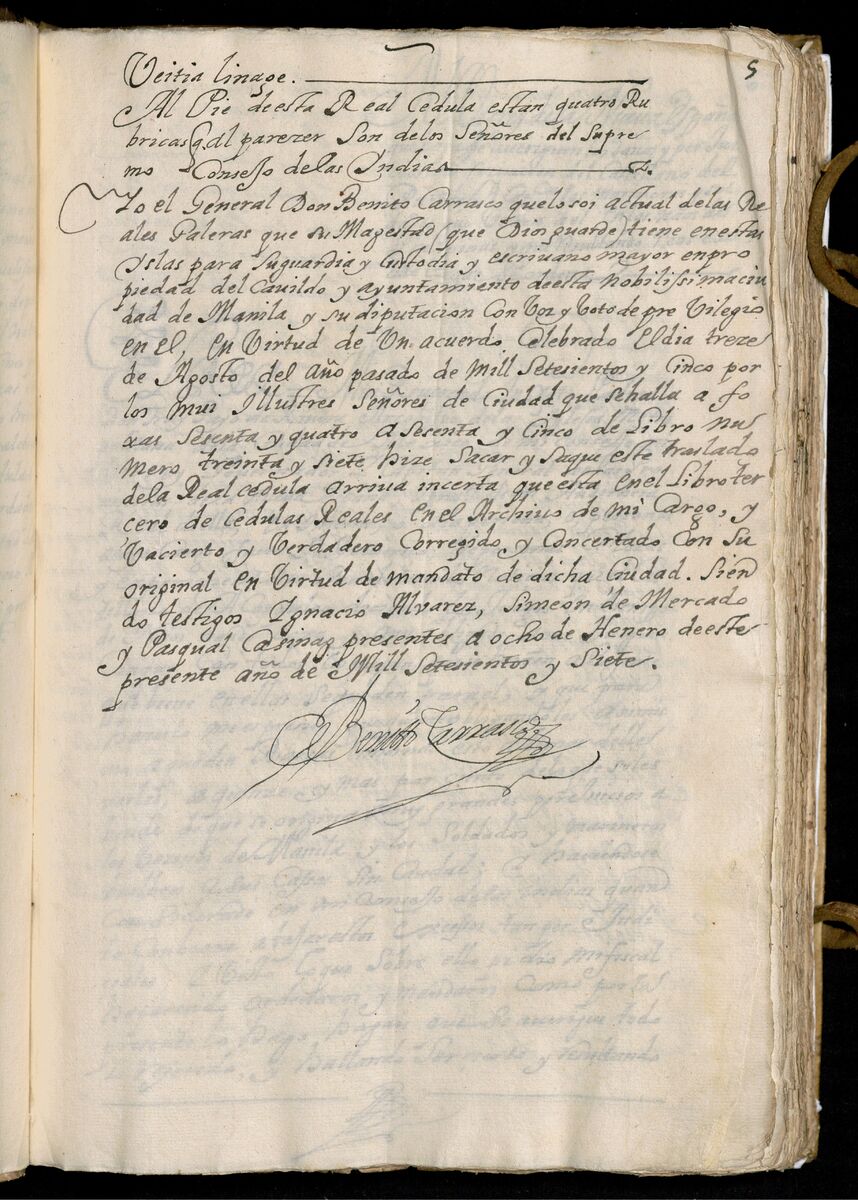 5
Veitia linage.
Al Pie deesta Real Cedula estan quatro Ru
bricas q̃ al parezer son delos Señores del Supre
mo Consejo delas Indias
Yo el General Don Benito Carrasco quelo soi actual delas Re
ales Galeras que su Magestad (que Dios guarde) tiene enestas
Yslas para suguardia y Custodia y escriuano mayor enpro
piedad del Cauildo y ayuntamiento deesta nobilissima ciu
dad de Manila y su diputacion Con Voz y Voto de pre Vilegio
en el, en Virtud de Un acuerdo Celebrado Eldia treze
de Agosto del año pasado de Mill Setesientos y Cinco por
los mui Illustres Señores de Ciudad que sehalla a fo
xas Sesenta y quatro a sesenta y Cinco de Libro nu
mero treinta y siete hize Sacar y saque este traslado
dela Real cedula arriua incerta que esta en el Libro ter
cero de Cedulas Reales en el Archiuo de mi Cargo, y
Vacierto y Verdadero Corregido y Concertado Con su
original en Virtud de mandato de dicha Ciudad. Sien
do testigos Ignacio Alvarez, Simeon de Mercado
y Pasqual Casinag presentes a ocho de Henero deeste
presente año de Mill Setesientos y Siete.
Benito Carrasco